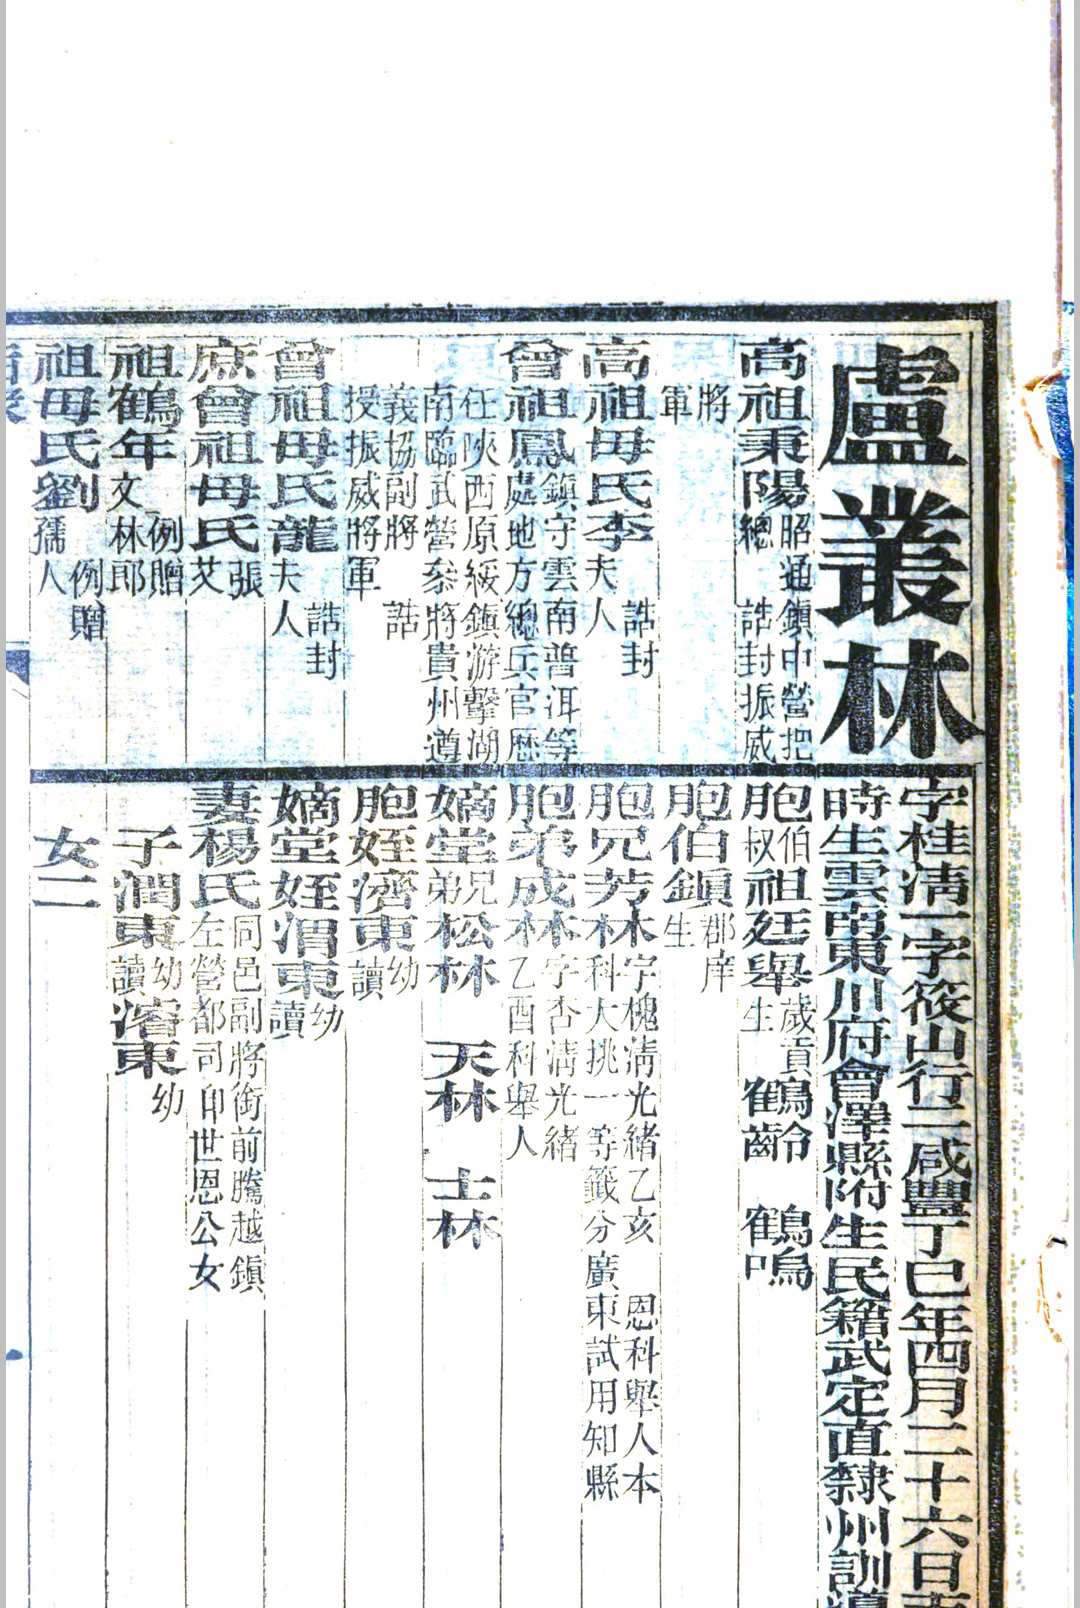 盧叢林
字桂清一字筱山行二咸豐丁巳年四月二十六日
時生雲南東川府會澤縣附生民籍武定直隸州訓導
高祖秉陽昭通鎮中營把
總 誥封振威
將
軍
高祖母氏李 誥封
夫人
曾祖鳳鎮守雲南普洱等
處地方總兵官歷
任陝西原綏鎮游擊湖
南臨武營叅將貴州遵
義協副將 誥
授振威將軍
曾祖母氏龍 誥封
夫人
庶曾祖母氏張
艾
祖鶴年 例贈
文林郎
祖母氏劉 例贈
孺人
胞伯叔祖廷舉歲貢
生 鶴齡 鶴鳴
胞伯鎮郡庠
生
胞兄芳林字槐清光緒乙亥 恩科舉人本
科大挑一等籤分廣東試用知縣
胞弟成林字杏清光緒
乙酉科舉人
嫡堂兄弟松林 天林 士林
胞姪濟東幼
讀
嫡堂姪渭東幼
讀
妻楊氏同邑副將銜前騰越鎮
左營都司印世恩公女
子澗東幼
讀 濬東幼
女二